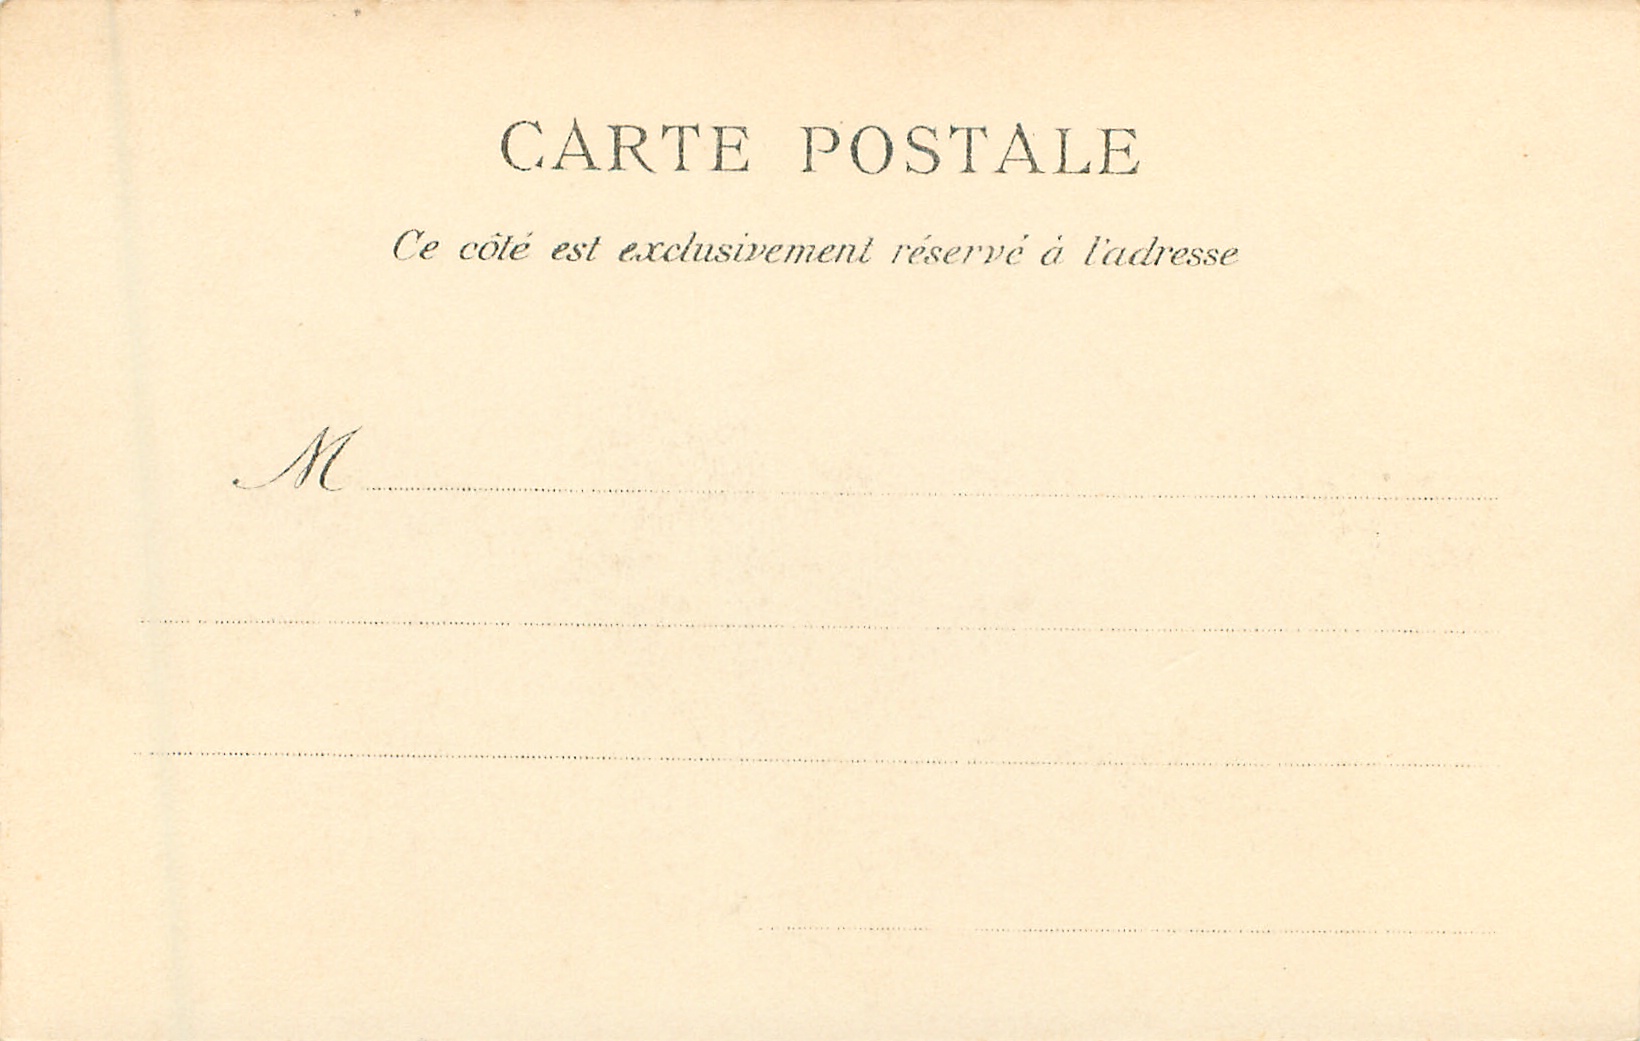 CARTE POSTALE
Ce côté est exclusivement réservé à l'adresse
M